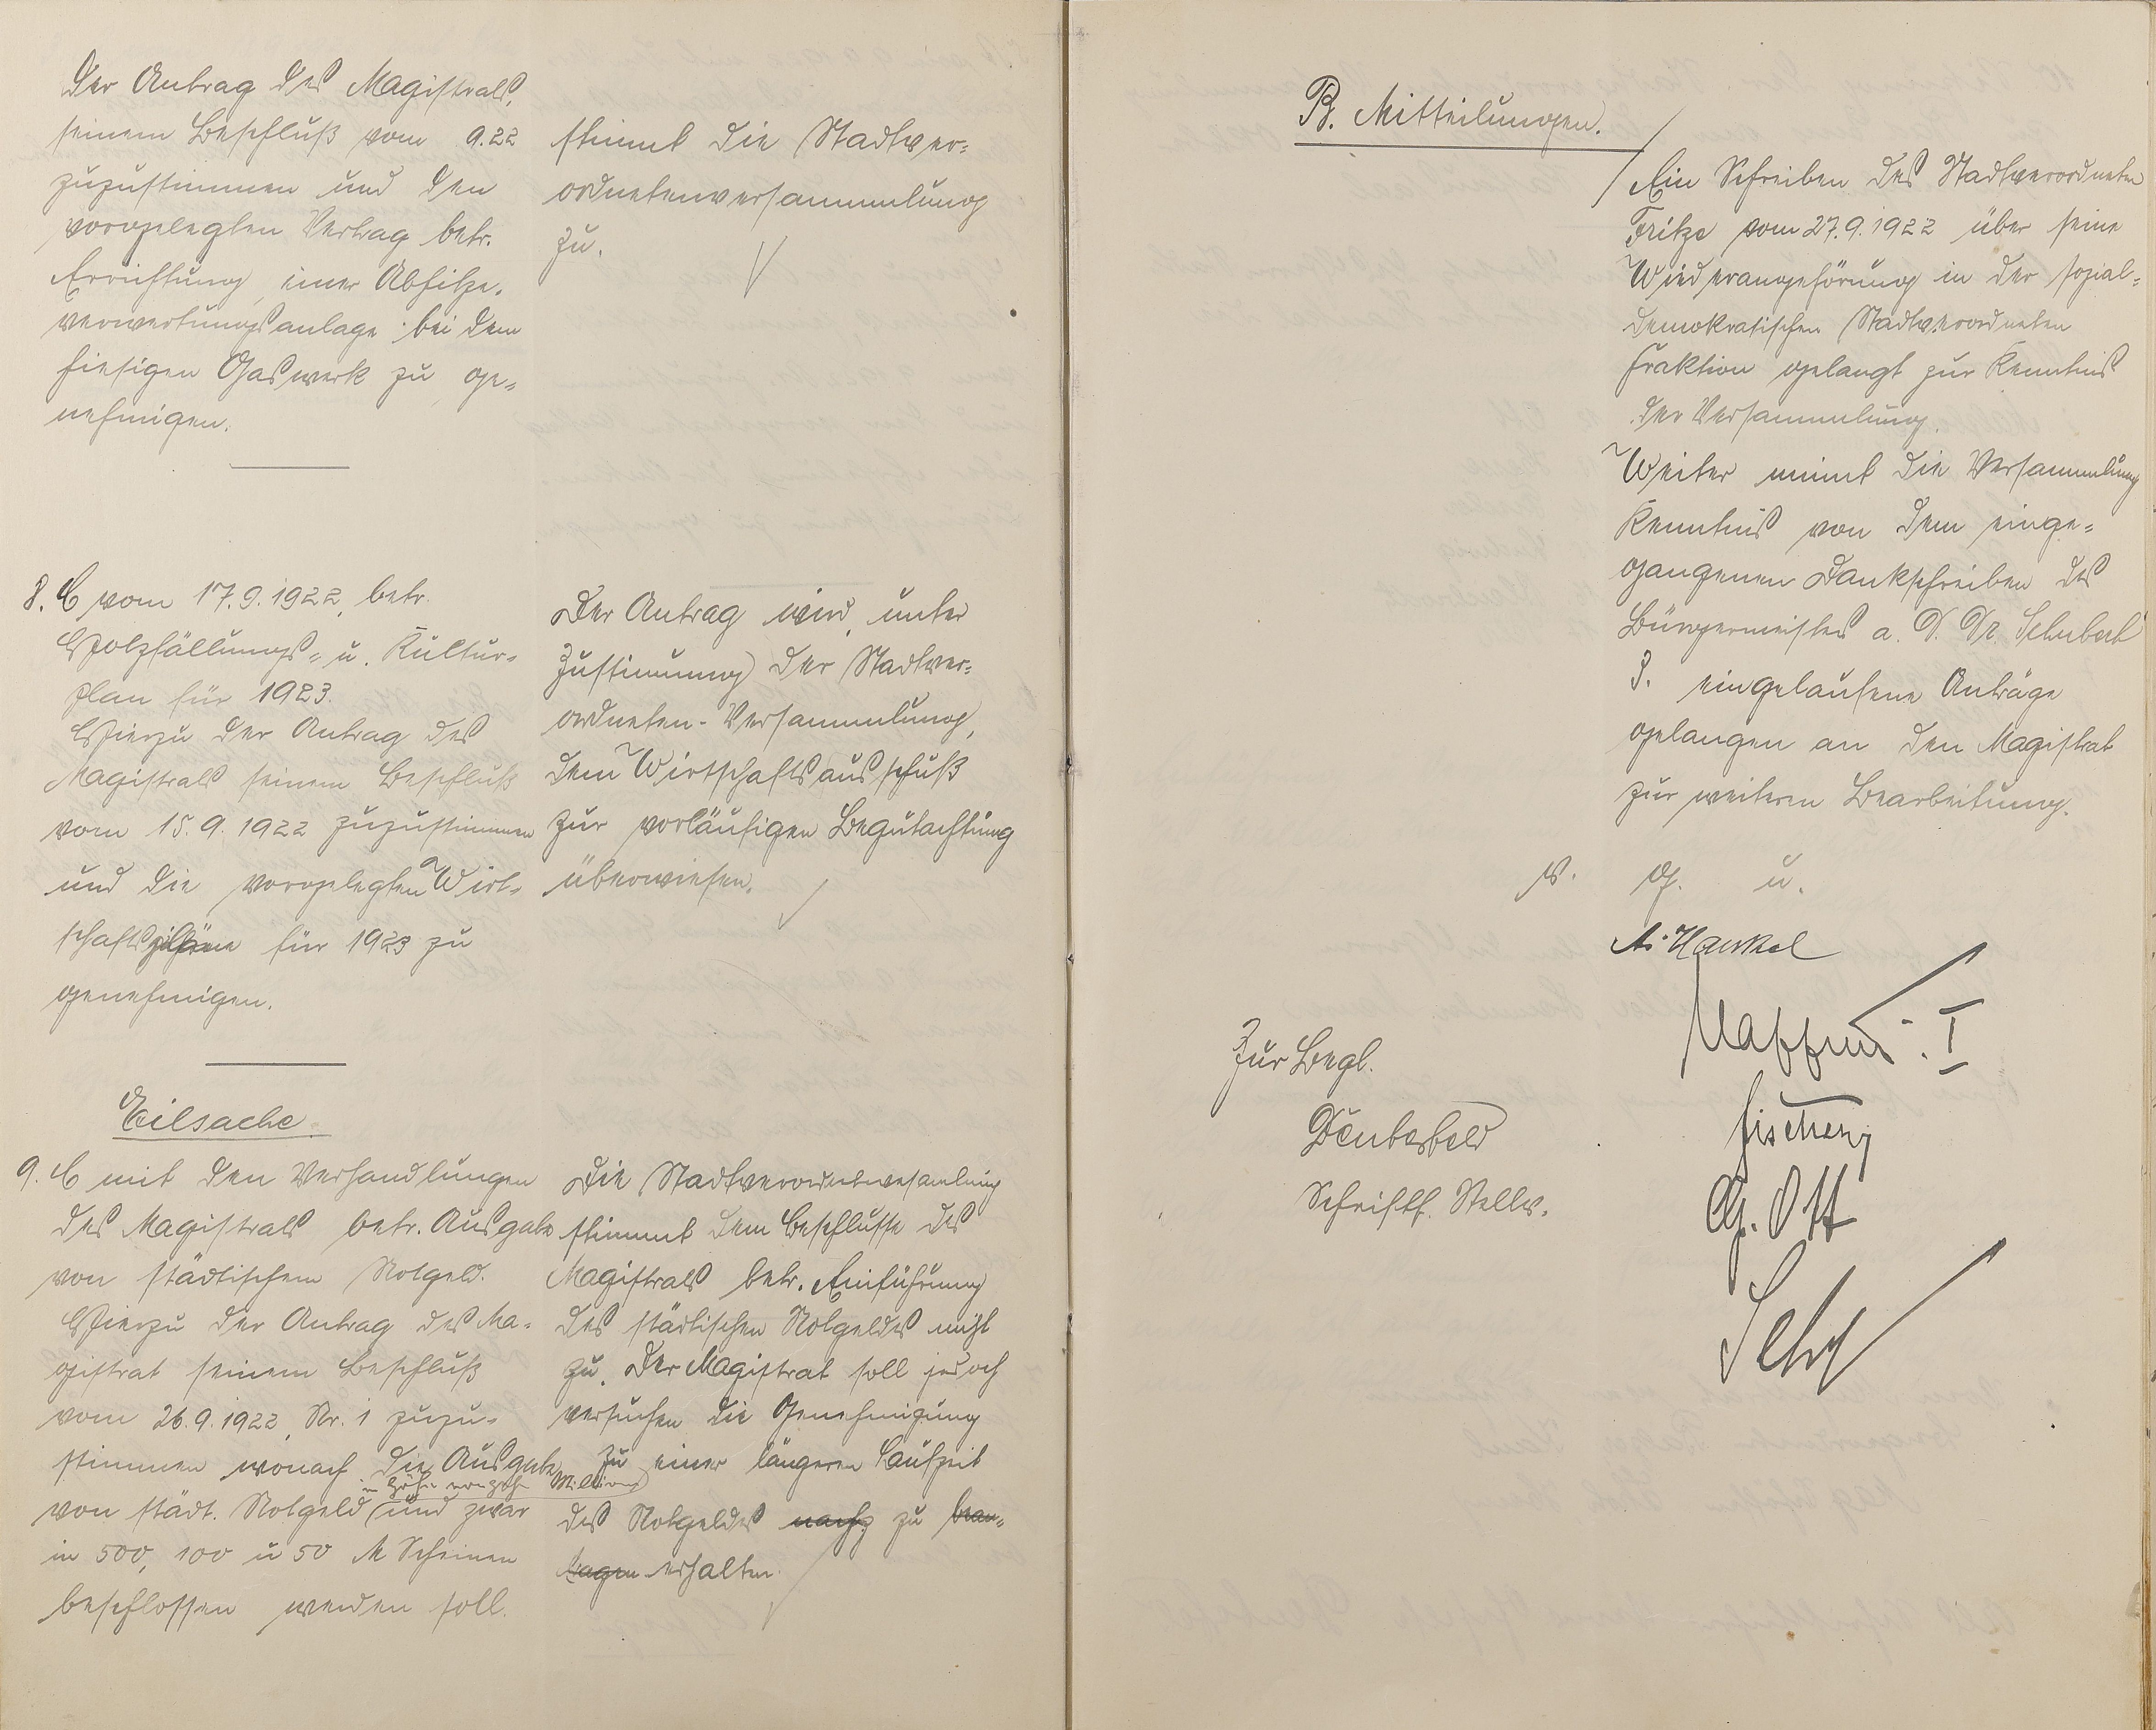 Der Antrag des Magistrats,
seinem Beschluß vom 9.22
zuzustimmen und den
vorgelegten Vertrag betr.
Errichtung einer Abhitze-
verwertungsanlage bei dem
hiesigen Gaswerk zu ge-
nehmigen.
stimmt die Stadtver-
ordnetenversammlung
zu.
8. E vom 17.9.1922, betr.
Holzfällungs- u. Kultur-
plan für 1923.
Hierzu der Antrag des
Magistrats seinem Beschluß
vom 15.9.1922 zuzustimmen
und die vorgelegten Wirt-
schafts für 1923 zu
genehmigen.
Der Antrag wird, unter
Zustimmung der Stadtver-
ordneten-Versammlung,
dem Wirtschaftsausschuß
zur vorläufigen Begutachtung
überwiesen.
Eilsache.
9. E mit den Verhandlungen
des Magistrats betr. Ausgabe
von städtischem Notgeld.
Hierzu der Antrag des Ma-
gistrat seinem Beschluß
vom 26.9.1922, Nr. 1 zuzu-
stimmen wonach die Ausgabe
in Höhe von zehn Millionen
von städt. Notgeld und zwar
in 500, 100 u 50 M Scheinen
beschlossen werden soll.
Die Stadtverordnetenversamlung
stimmt dem Beschlusse des
Magistrats betr. Einführung
des städtischen Notgeldes
zu. Der Magistrat soll jedoch
versuchen die Genehmigung
zu einer längeren Laufzeit
des Notgeldes nachz zu bean-
tragen erhalten.
B. Mitteilungen.
Ein Schreiben des Stadtverordneten
Fritze vom 27.9.1922 über seine
Wiederangehörung in der sozial-
demokratischen Stadtverordneten
Fraktion gelangt zur Kenntnis
der Versammlung.
Weiter nimmt die Versammlung
Kenntnis von dem einge-
gangenen Dankschreiben des
Bürgermeisters a. D. Dr. Schubert
3. eingelaufene Anträge
gelangen an den Magistrat
zur weiteren Bearbeitung.
v. g. u.
A. Henkel
Zur Begl.
Schriftf. Stellv.
Fischer
G. Ott